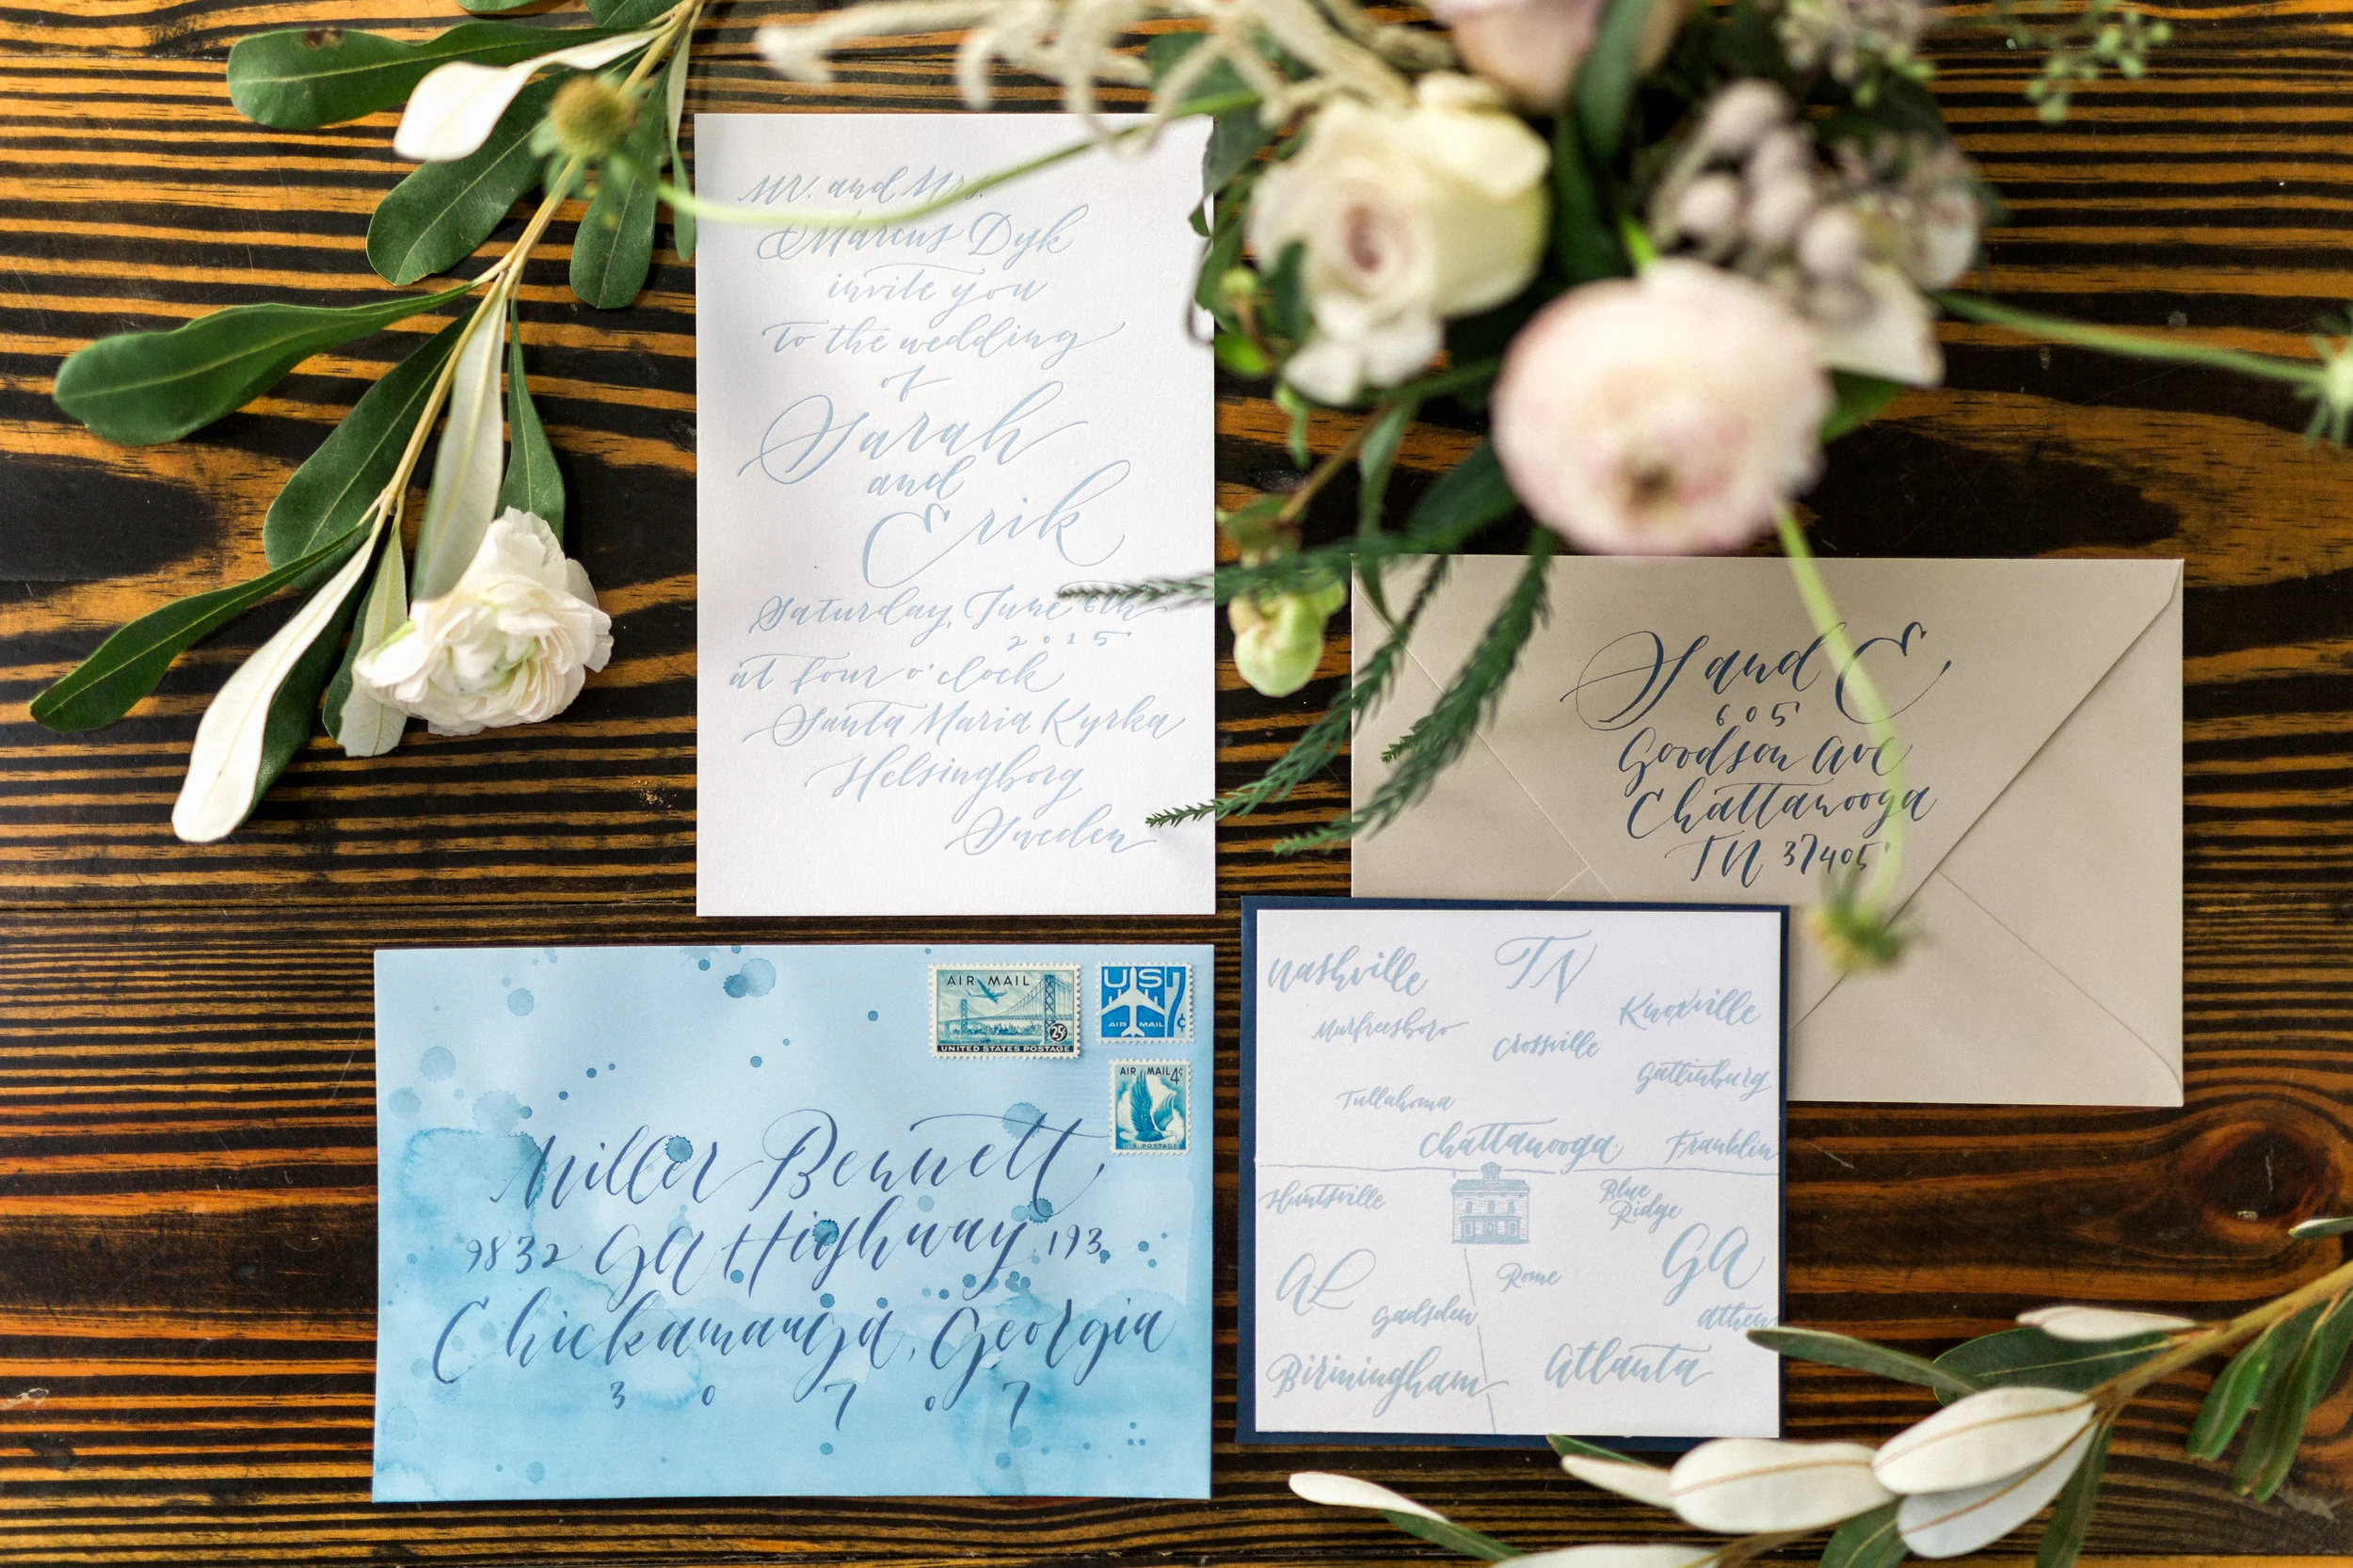 Mr. and Mrs.
Marcus Dyk
invite you
to the wedding
of
Sarah
and
Erik
Saturday, June 6th
2015
at four o'clock
Santa Maria Kyrka
Helsingborg
Sweden
S and E
605
Goodson Ave
Chattanooga
TN 37405
AIR MAIL
25¢
UNITED STATES POSTAGE
US 7¢
AIR MAIL
AIR MAIL 4¢
U.S. POSTAGE
Miller Bennett
9832 GA Highway 193
Chickamauga, Georgia
30707
Nashville
TN
Knoxville
Murfreesboro
Crossville
Gatlinburg
Tullahoma
Chattanooga
Franklin
Huntsville
Blue
Ridge
GA
AL
Rome
Gadsden
Athens
Birmingham
Atlanta